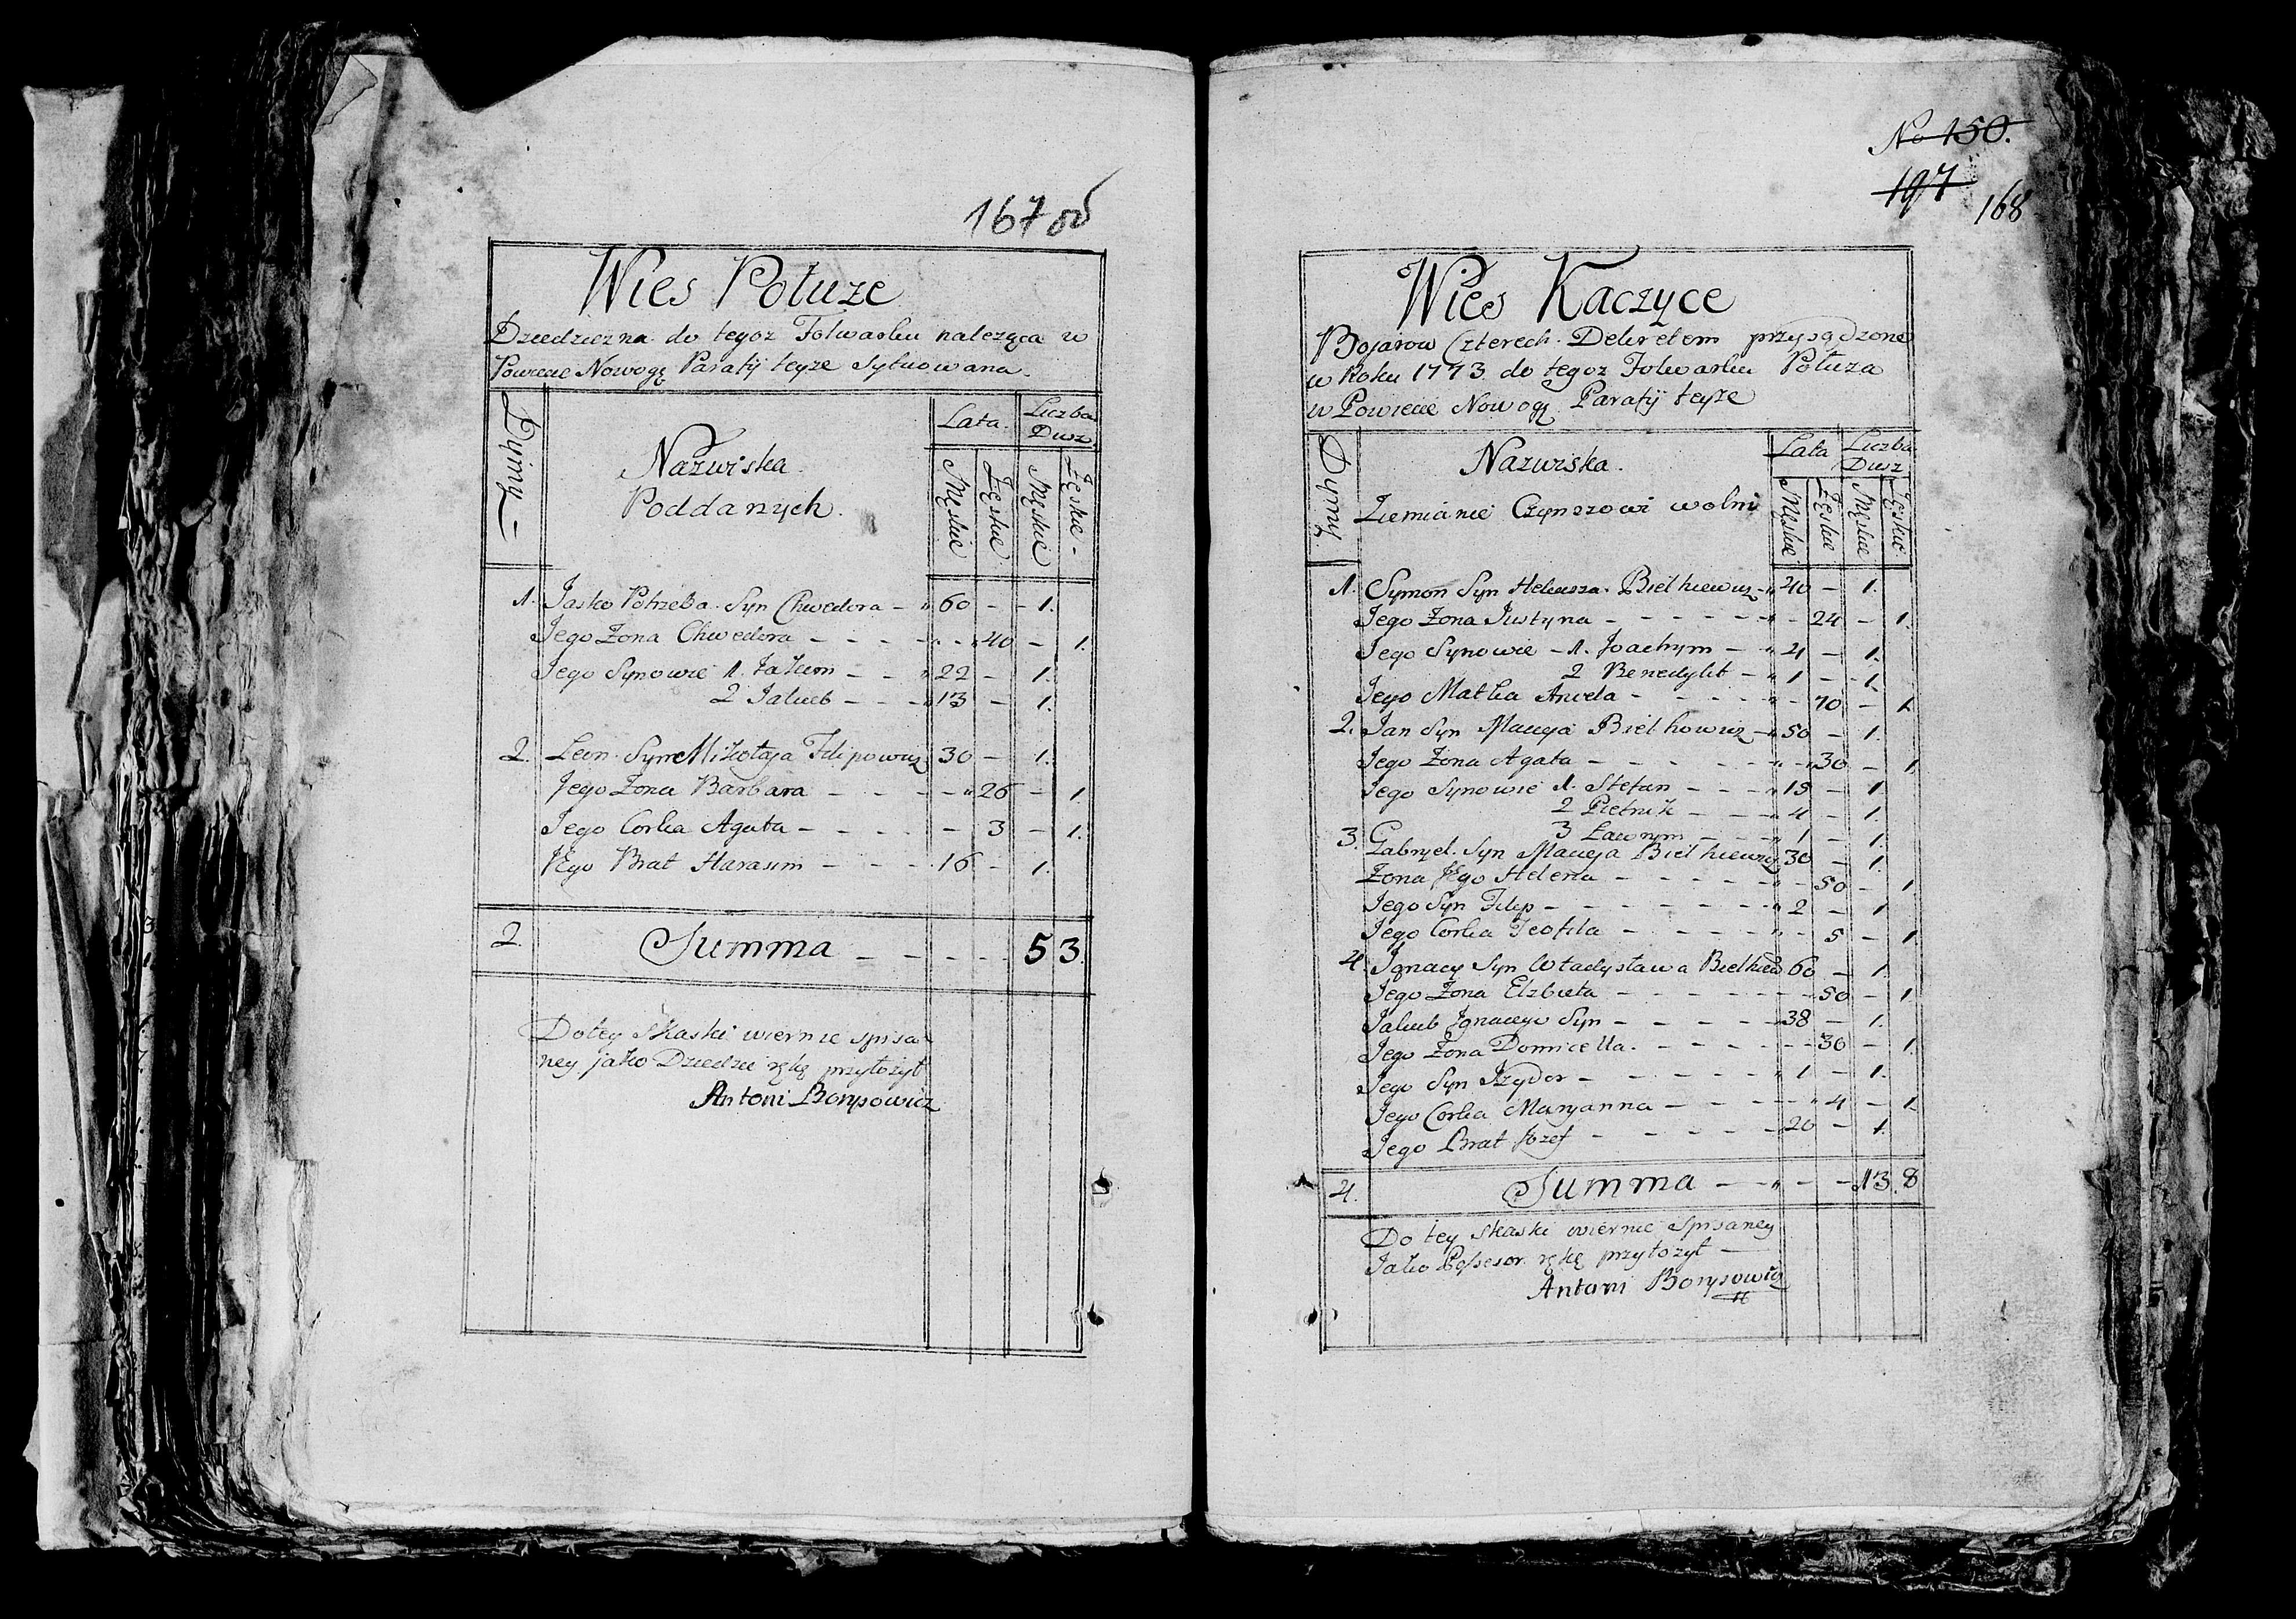 167 об
Wies Połuze
Dziedziczna do tegoz Folwarku naleząca w
Powiecie Nowogr Parafij teyze Sytuowana.
Dymy
Nazwiska
Poddanych.
Lata.
Liczba Dusz
Męskie
Zęskie
Męskie
Zęskie
1. Jasko Potrzeba Syn Chwedora - 60 - - 1.
Jego Zona Chwedora - - - - 40 - 1.
Jego Synowie 1. Jakim - - 22 - 1.
2 Jakub - - - 13 - 1.
2. Leon Syn Mikołaja Filipowicz 30 - 1.
Jego Zona Barbara - - - - 26 - 1.
Jego Corka Agata - - - - 3 - 1.
Jego Brat Harasim - - - 16 - 1.
2. Summa - - - - - 5 3.
Do tey Skaski wiernie spisa-
ney jako Dziedzic rękę przyłożył
Antoni Borysowicz
No 150.
197
168
Wies Kaczyce
Bojarow Czterech Dekretem przysądzone
w Roku 1773 do tegoz Folwarku Połuza
w Powiecie Nowogr Parafij teyze
Dymy
Nazwiska.
Ziemianie Czynszowi wolni
Lata
Liczba Dusz
Męskie
Zęskie
Męskie
Zęskie
1. Symon Syn Bielkiewicz - 40 - 1.
Jego Zona Justyna - - - - - - 24 - 1.
Jego Synowie - 1. Joachym - 4 - 1.
2 Benedykt - 1 - 1.
Jego Matka Aniela - - - - - 70 - 1.
2. Jan Syn Macieja Bielkowicz - 50 - 1.
Jego Zona Agata - - - - - - 30 - 1.
Jego Synowie 1. Stefan - - - 15 - 1.
2 Pietruk - - - 4 - 1.
3 Ławrym - - - 1 - 1.
3. Gabryel Syn Macieja Bielkiewicz 30 - 1.
Zona Jego Helena - - - - - - 50 - 1
Jego Syn Filip - - - - - - 2 - 1
Jego Corka Teofila - - - - - - 5 - 1.
4. Ignacy Syn Władysława Bielkiew 60 - 1.
Jego Zona Elzbieta - - - - - - 50 - 1.
Jakub Ignacego Syn - - - - - 38 - 1.
Jego Zona Domicella. - - - - - - 30 - 1.
Jego Syn Izydor - - - - - - 1 - 1.
Jego Corka Maryanna - - - - - 4 - 1.
Jego Brat Jozef - - - - - - 20 - 1.
4. Summa - - - - 13. 8
Do tey Skaski wiernie Spisaney
Jako Possesor rękę przyłożył -
Antoni Borysowicz